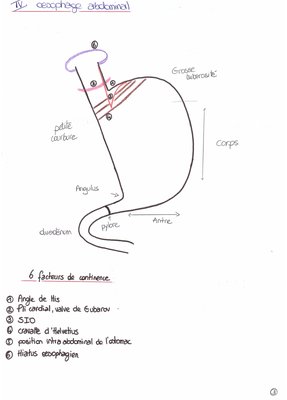 IV oesophage abdominal
⑥
Grosse tubérosité
③ ①
④
②
⑤
petite courbure
Corps
Angulus
Antre
pylore
duodénum
6 facteurs de continence
① Angle de His
② Pli cardial, valve de Gubarov
③ S.I.O
④ cravate d'Helvetius
⑤ position intra abdominal de l'estomac
⑥ Hiatus oesophagien